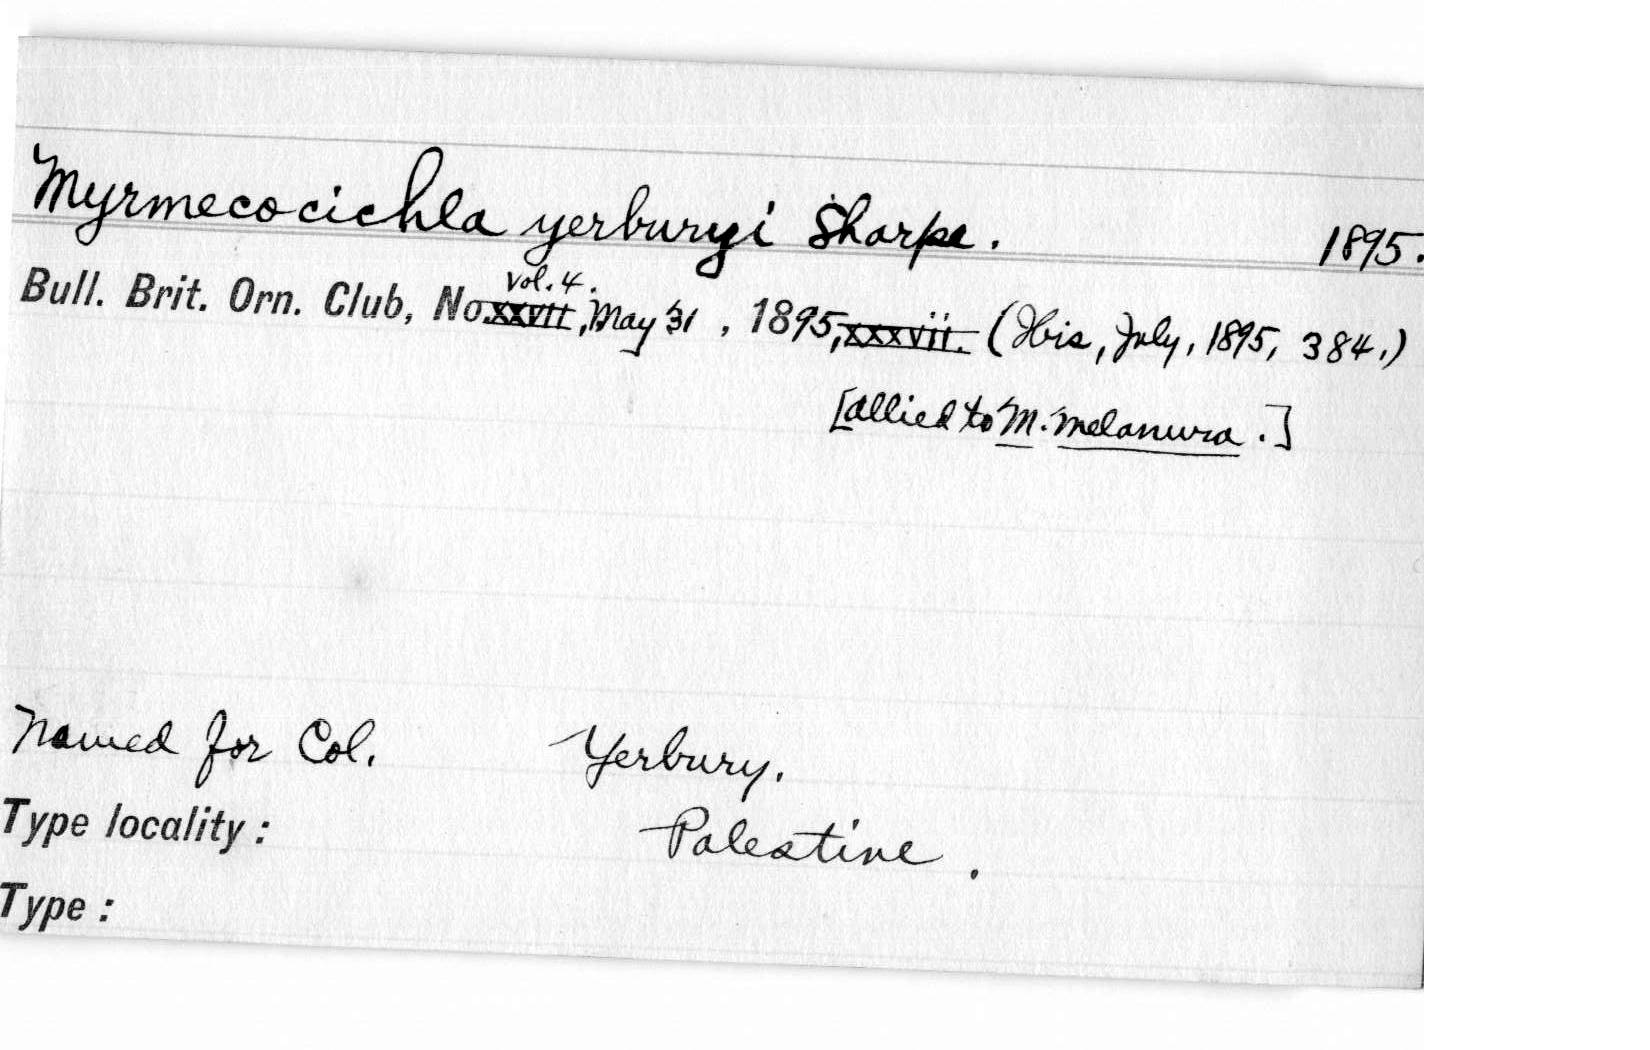 Myrmecocichla yerburyi Sharpe. 1895.
vol. 4.
Bull. Brit. Orn. Club, No. xxvii, May 31, 1895, xxxvii. (Ibis, July, 1895, 384.)
[allied to M. melanura.]
Named for Col. Yerbury.
Type locality: Palestine.
Type: